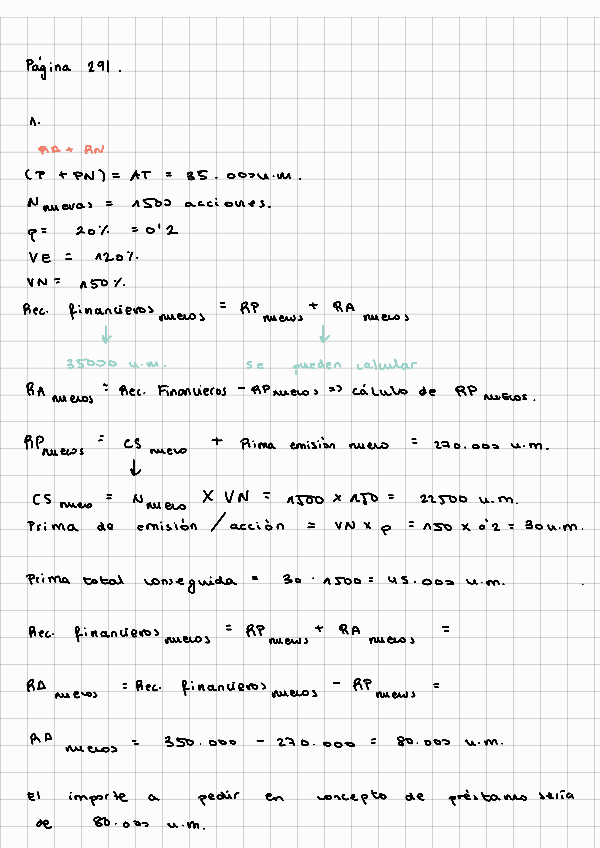 Página 291.
1.
RA + RN
(P + PN) = AT = 35.000 u.m.
N nuevas = 1500 acciones.
p = 20% = 0'2
VE = 120%
VN = 150%
Rec. financieros nuevos = RP nuevos + RA nuevos
35000 u.m. se pueden calcular
RA nuevos = Rec. Financieros - RP nuevos => cálculo de RP nuevos.
RP nuevos = CS nuevo + Prima emisión nuevo = 270.000 u.m.
CS nuevo = N nuevo X VN = 1500 x 150 = 22500 u.m.
Prima de emisión / acción = VN x p = 150 x 0'2 = 30 u.m.
Prima total conseguida = 30 · 1500 = 45.000 u.m.
Rec. financieros nuevos = RP nuevos + RA nuevos =
RA nuevos = Rec. financieros nuevos - RP nuevos =
RA nuevos = 350.000 - 270.000 = 80.000 u.m.
El importe a pedir en concepto de préstamo sería
de 80.000 u.m.